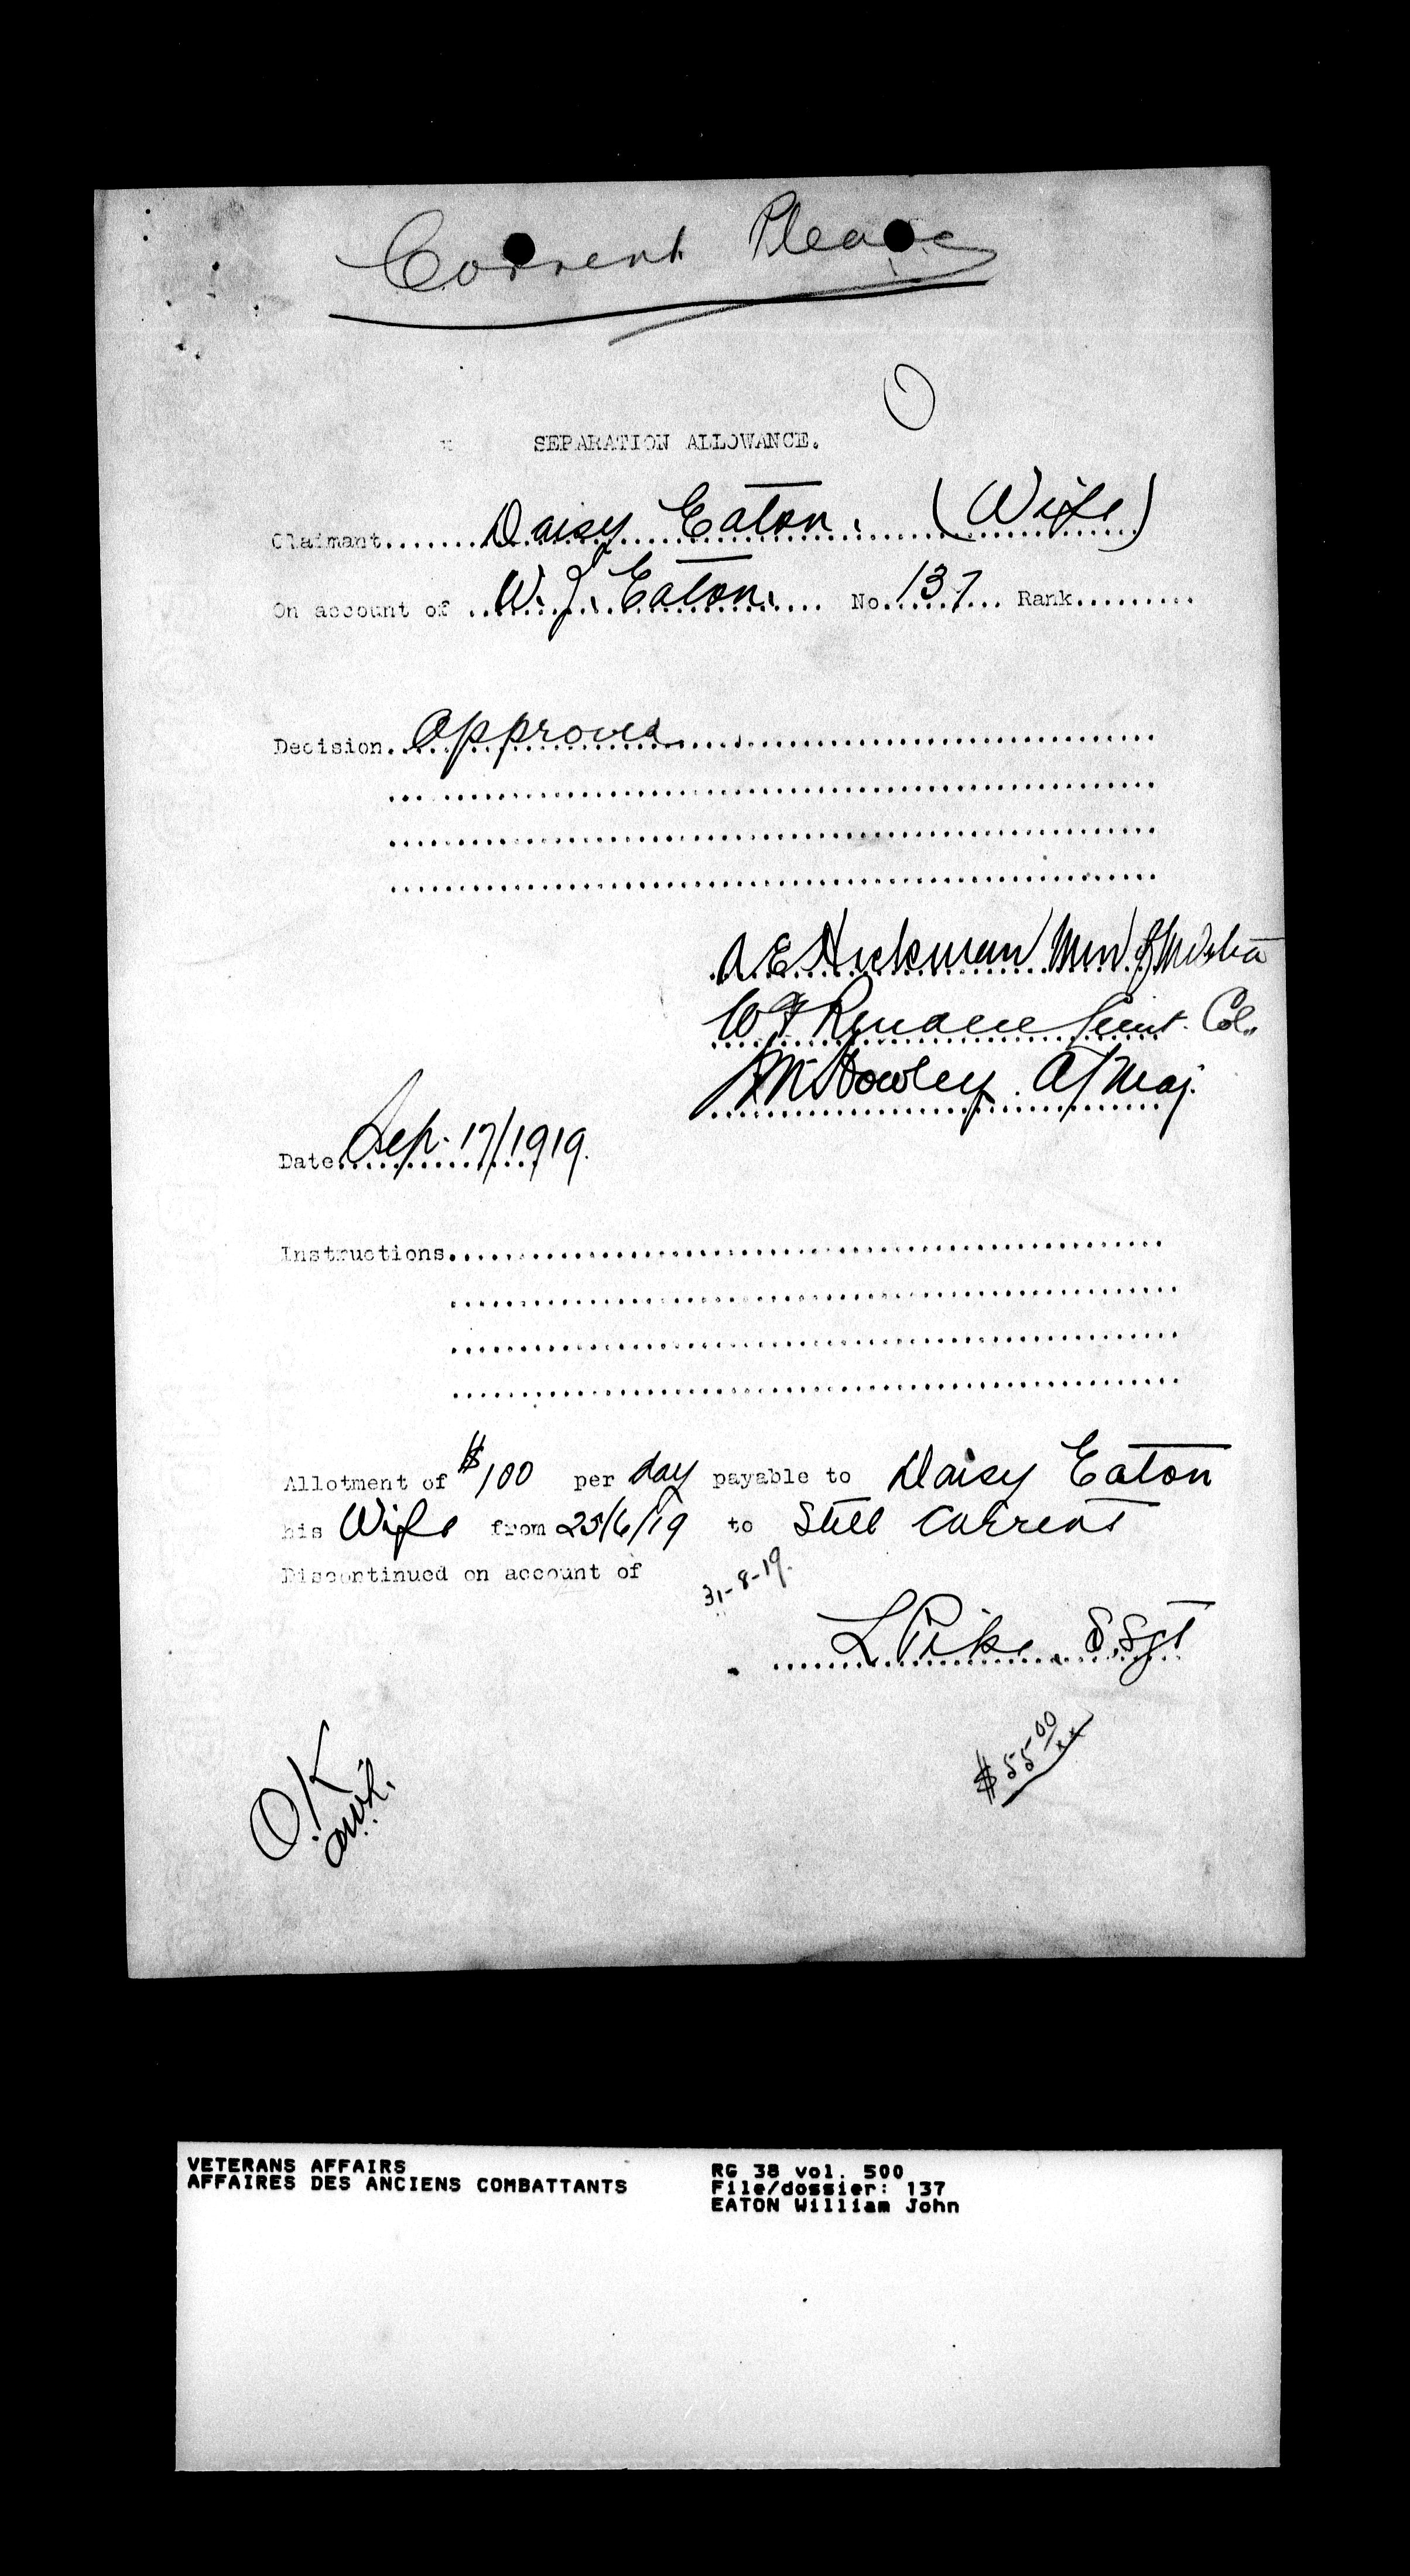 Current Please
O
SEPARATION ALLOWANCE.
Claimant.......Daisy Eaton. (Wife)
On account of W. J. Eaton. No. 137 Rank.........
Decision. Approved
A E Hickman Min of Militia
W F Rendell Lieut. Col.
Howley. A/Maj.
Date Sep. 17/1919.
Instructions
Allotment of $1 00 per day payable to Daisy Eaton
his Wife from 25/6/19 to Still Current
Discontinued on account of
31-8-19.
L Pike. S. Sgt
$55 00
O.K
VETERANS AFFAIRS
AFFAIRES DES ANCIENS COMBATTANTS
RG 38 vol. 500
File/dossier: 137
EATON William John